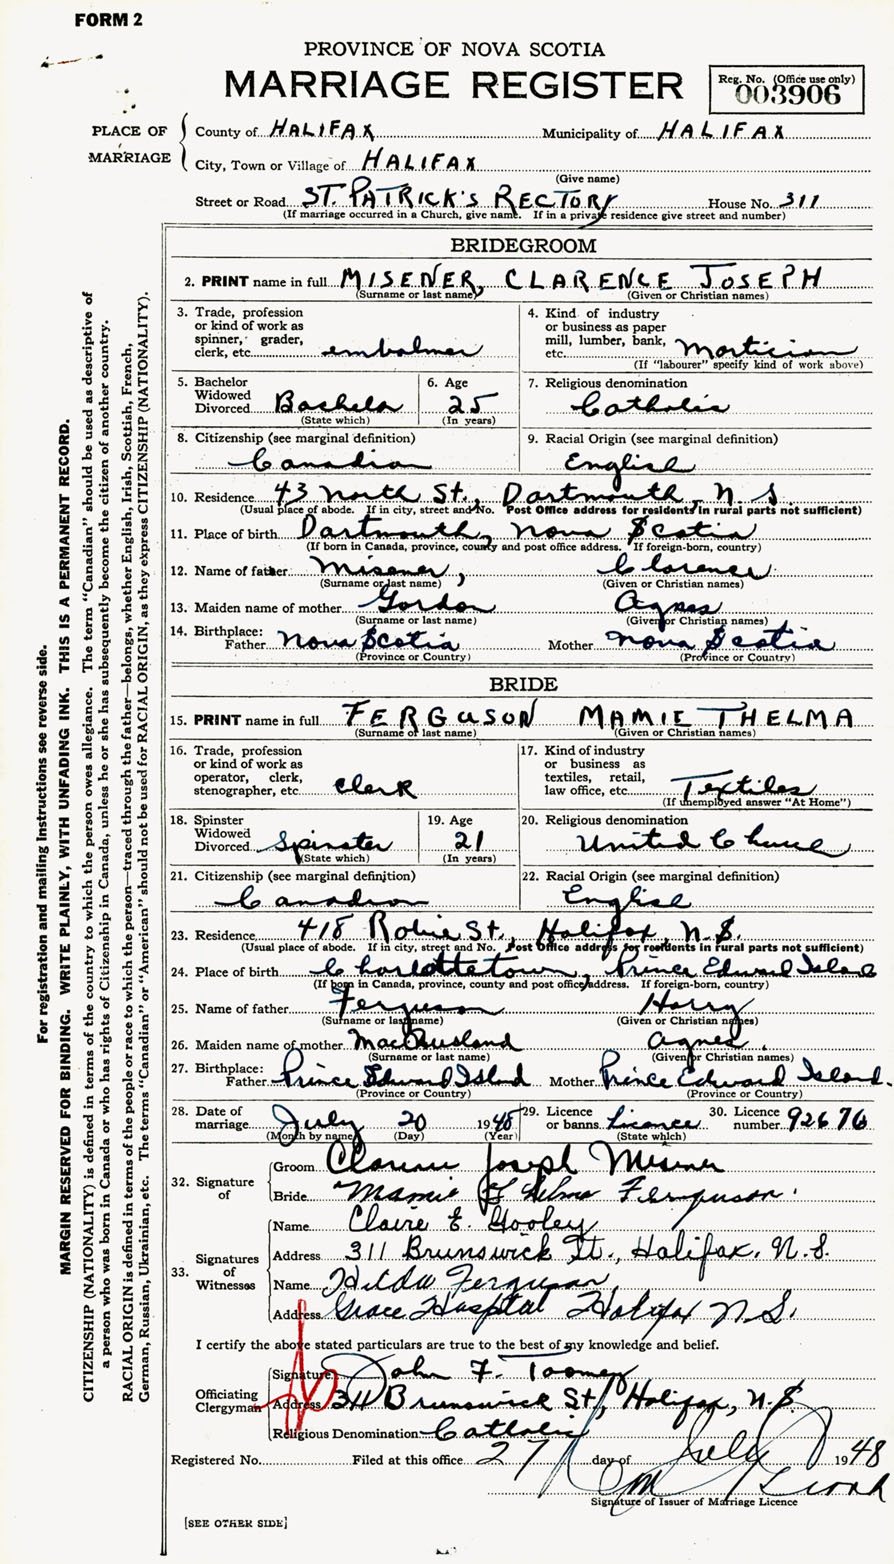 FORM 2
PROVINCE OF NOVA SCOTIA
MARRIAGE REGISTER
Reg. No. (Office use only)
003906
PLACE OF MARRIAGE
County of HALIFAX Municipality of HALIFAX
City, Town or Village of HALIFAX
(Give name)
Street or Road ST. PATRICK'S RECTORY House No. 311
(If marriage occurred in a Church, give name. If in a private residence give street and number)
BRIDEGROOM
2. PRINT name in full MISENER, CLARENCE JOSEPH
(Surname or last name) (Given or Christian names)
3. Trade, profession or kind of work as spinner, grader, clerk, etc. embalmer
4. Kind of industry or business as paper mill, lumber, bank, etc. Mortician
(If "labourer" specify kind of work above)
5. Bachelor Widowed Divorced Bachelor
(State which)
6. Age 25
(In years)
7. Religious denomination Catholic
8. Citizenship (see marginal definition) Canadian
9. Racial Origin (see marginal definition) English
10. Residence 43 North St., Dartmouth, N.S.
(Usual place of abode. If in city, street and No. Post Office address for residents in rural parts not sufficient)
11. Place of birth Dartmouth, Nova Scotia
(If born in Canada, province, county and post office address. If foreign-born, country)
12. Name of father Misener, Clarence
(Surname or last name) (Given or Christian names)
13. Maiden name of mother Gordon Agnes
(Surname or last name) (Given or Christian names)
14. Birthplace: Father Nova Scotia Mother Nova Scotia
(Province or Country) (Province or Country)
BRIDE
15. PRINT name in full FERGUSON MAMIE THELMA
(Surname or last name) (Given or Christian names)
16. Trade, profession or kind of work as operator, clerk, stenographer, etc Clerk
17. Kind of industry or business as textiles, retail, law office, etc. Textiles
(If unemployed answer "At Home")
18. Spinster Widowed Divorced Spinster
(State which)
19. Age 21
(In years)
20. Religious denomination United Church
21. Citizenship (see marginal definition) Canadian
22. Racial Origin (see marginal definition) English
23. Residence 418 Robie St., Halifax, N.S.
(Usual place of abode. If in city, street and No. Post Office address for residents in rural parts not sufficient)
24. Place of birth Charlottetown, Prince Edward Island
(If born in Canada, province, county and post office address. If foreign-born, country)
25. Name of father Ferguson Harry
(Surname or last name) (Given or Christian names)
26. Maiden name of mother MacAusland Agnes
(Surname or last name) (Given or Christian names)
27. Birthplace: Father Prince Edward Island Mother Prince Edward Island.
(Province or Country) (Province or Country)
28. Date of marriage July 20 1948
(Month by name) (Day) (Year)
29. Licence or banns Licence
(State which)
30. Licence number 92676
32. Signature of
Groom Clarence Joseph Misener
Bride Mamie Thelma Ferguson
33. Signatures of Witnesses
Name Claire E. Gooley
Address 311 Brunswick St., Halifax, N.S.
Name Hilda Ferguson
Address Grace Hospital Halifax N.S.
I certify the above stated particulars are true to the best of my knowledge and belief.
Officiating Clergyman
Signature John F. Toomey
Address 311 Brunswick St, Halifax, N.S.
Religious Denomination Catholic
Registered No. Filed at this office 27 day of July 1948
Signature of Issuer of Marriage Licence
[SEE OTHER SIDE]
For registration and mailing instructions see reverse side.
MARGIN RESERVED FOR BINDING. WRITE PLAINLY, WITH UNFADING INK. THIS IS A PERMANENT RECORD.
CITIZENSHIP (NATIONALITY) is defined in terms of the country to which the person owes allegiance. The term "Canadian" should be used as descriptive of
a person who was born in Canada or who has rights of Citizenship in Canada, unless he or she has subsequently become the citizen of another country.
RACIAL ORIGIN is defined in terms of the people or race to which the person—traced through the father—belongs, whether English, Irish, Scottish, French,
German, Russian, Ukrainian, etc. The terms "Canadian" or "American" should not be used for RACIAL ORIGIN, as they express CITIZENSHIP (NATIONALITY).